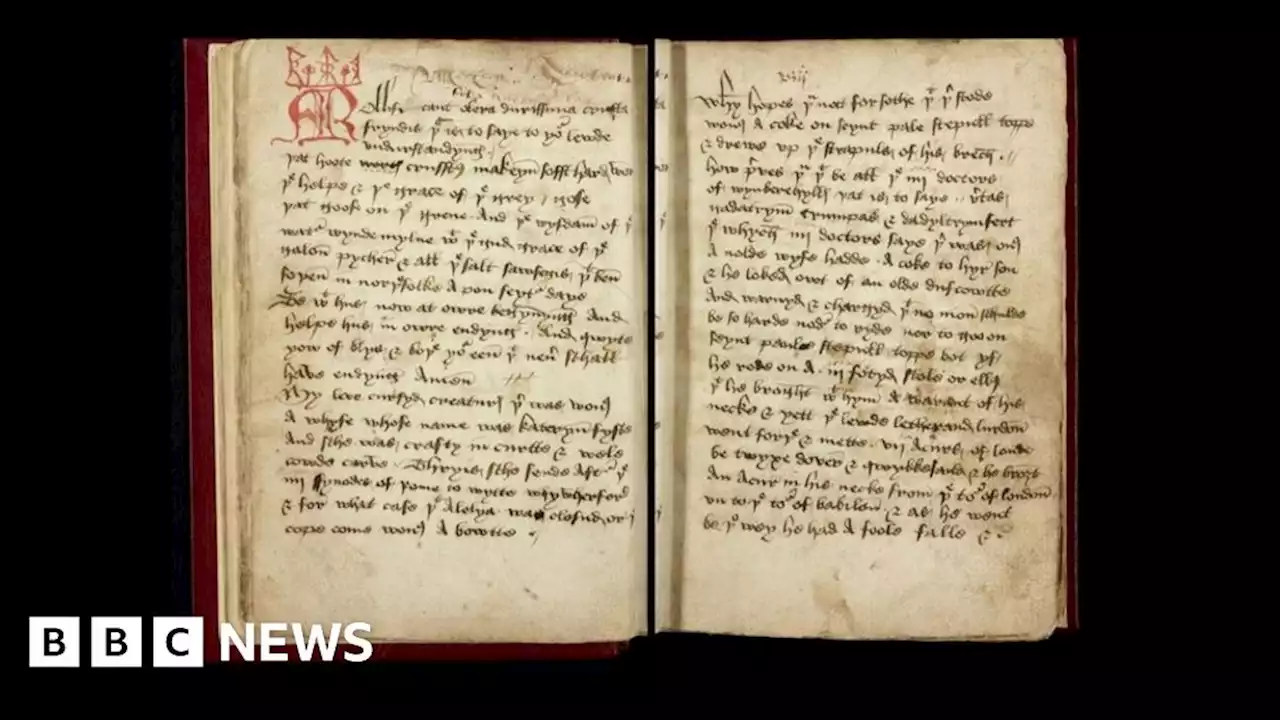 Mollificant olera durissima crusta
fryndis þt is to saye to yor lewde
vndurstandyng
þat hoote crusstis makeyn sofft hard
þe helpe & þe grace of þe grey gose
þat goose on þe grene And þe wysdam of þe
watr wynde mylne wt þe gud grace of þe
galon pycher & all þe salt sawsegis þt ben
sopen in norþfolke A pon seynt days
Be wt hus now at owre begynnyng And
helpe hus in owre endyng And qwyte
yow of blys & boþe yor een þt neuer schall
haue endyng Amen
My leve cursyd creaturis þr was onis
A whyfe whose name was kateryn fyste
And sche was crafty in curtte & wele
cowde carve sche sende Aftr þe
iiii synodes of rome to wytte why wherford
& for what case þt Aleluya was closud or þe
coppe come onis A bowtte
Why hopes þu not for sothe þt þer stode
onis A coke on seynt pale stepull toppe
& drewe vp þe strapuls of his brech
how preves þu þt be all þe iiii doctors
of wynbere hyllis þat is to saye vertas
gadatryme trumpas & dadyltrymsert
þe whych iiii doctors saye þer was onis
A nolde wyfe hadde A coke to hyr son
& he loked owt of an olde dufcowtte
And warnyd & chargyd þt no mon schulde
be so hardé nodr to ryde ner to goo on
seynt paule stepull toppe bot yf
he rode on A iii fotyd stole or ellis
þt he broght wt hym A warent of his
necke & yett þe lewde letherand lurdon
went forþe & mette vii Acurs of londe
be twyxe dover & qwykkesand & he broʒt
An Acur in his necke from þe tor of london
vn to þe tor of babilon & as he went
be þe wey he had A foole falle &
BBC NEWS